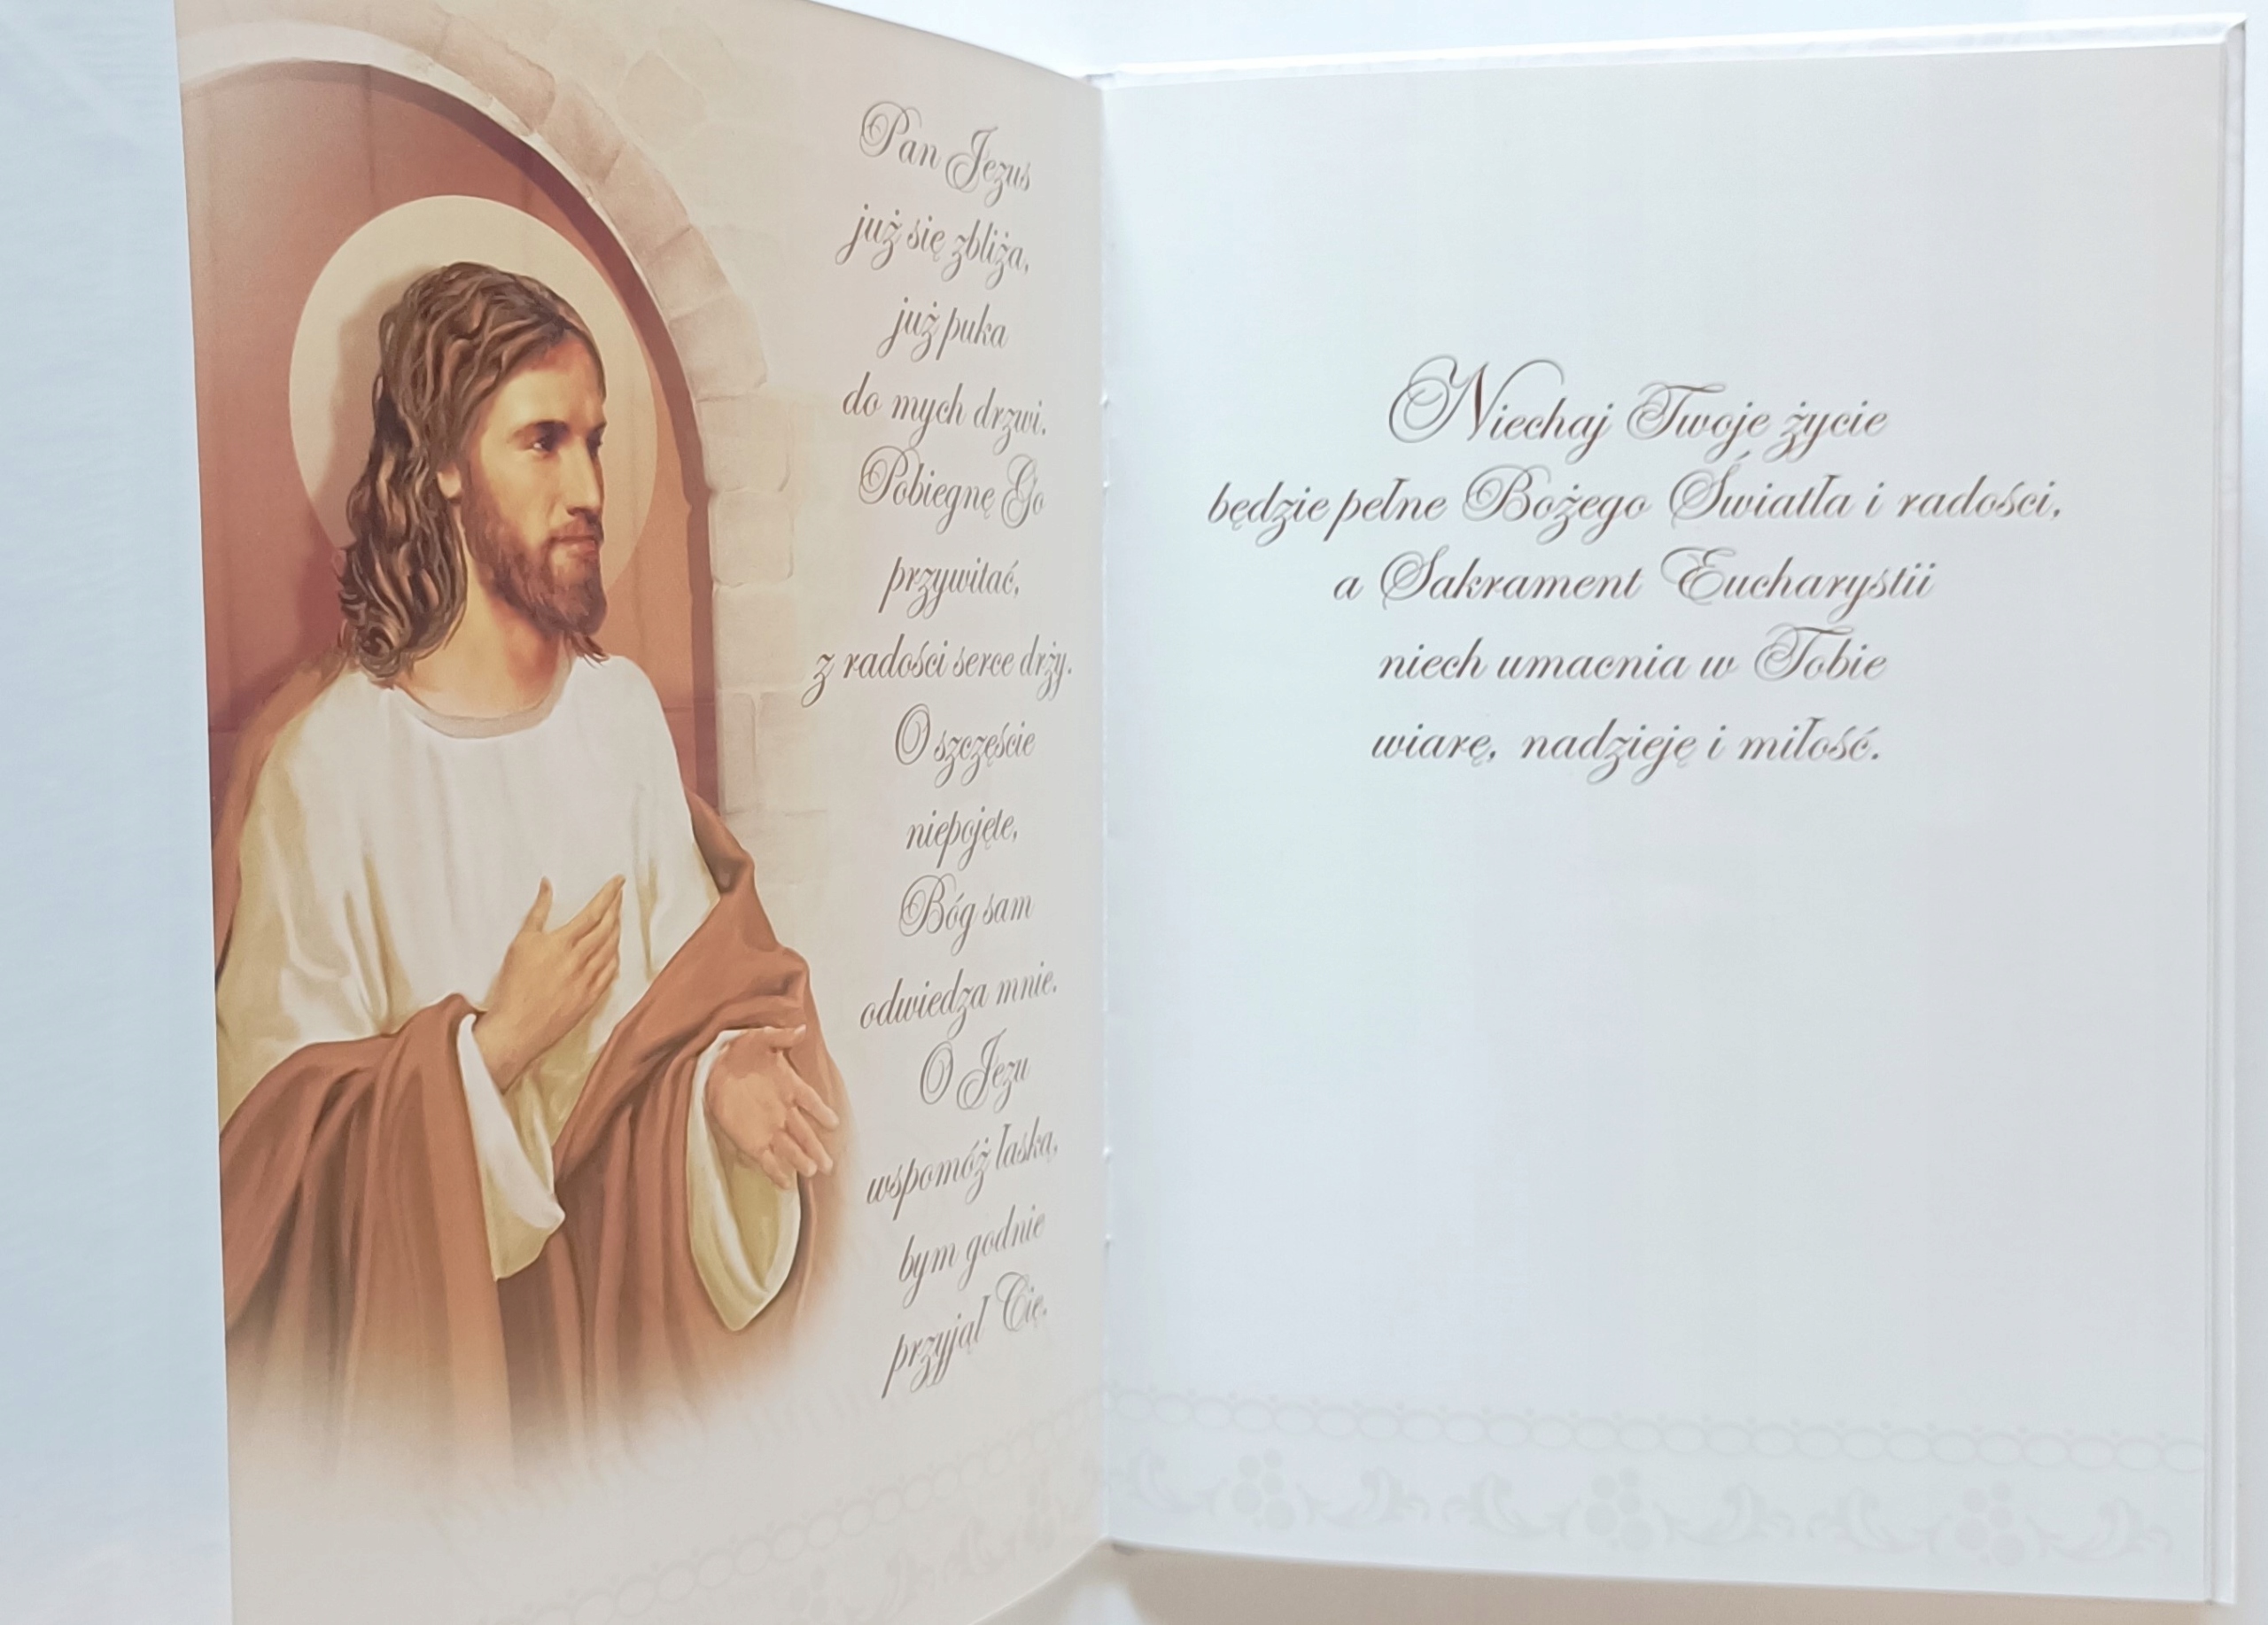 Pan Jezus
już się zbliża,
już puka
do mych drzwi.
Pobiegnę Go
przywitać,
z radości serce drży.
O szczęście
niepojęte,
Bóg sam
odwiedza mnie.
O Jezu
wspomóż łaską,
bym godnie
przyjął Cię.
Niechaj Twoje życie
będzie pełne Bożego Światła i radości,
a Sakrament Eucharystii
niech umacnia w Tobie
wiarę, nadzieję i miłość.